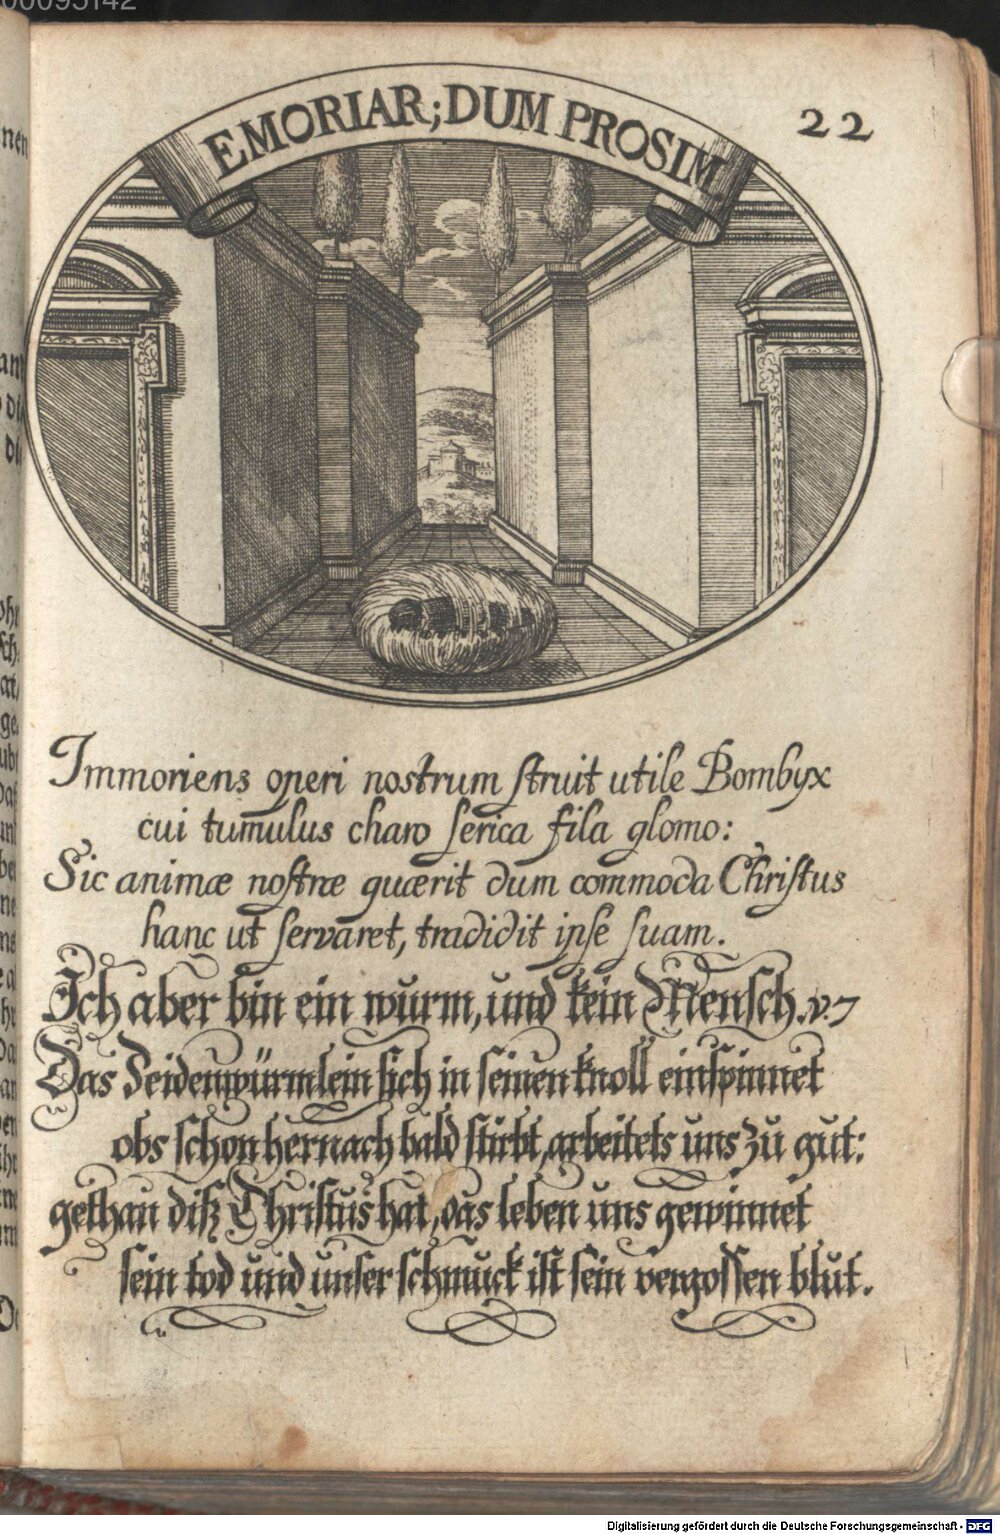 00095142
EMORIAR; DUM PROSIM
22
Immoriens operi nostrum struit utile Bombyx
cui tumulus charo serica fila glomo:
Sic animæ nostræ quærit dum commoda Christus
hanc ut servaret, tradidit ipse suam.
Ich aber bin ein wurm, und kein Mensch. v. 7
Das Seidenwürmlein sich in seinen knoll einspinnet
obs schon hernach bald stirbt, arbeitets uns zu gut:
gethan diß Christus hat, das leben uns gewinnet
sein tod und unser schmuck ist sein vergossen blut.
Digitalisierung gefördert durch die Deutsche Forschungsgemeinschaft - DFG